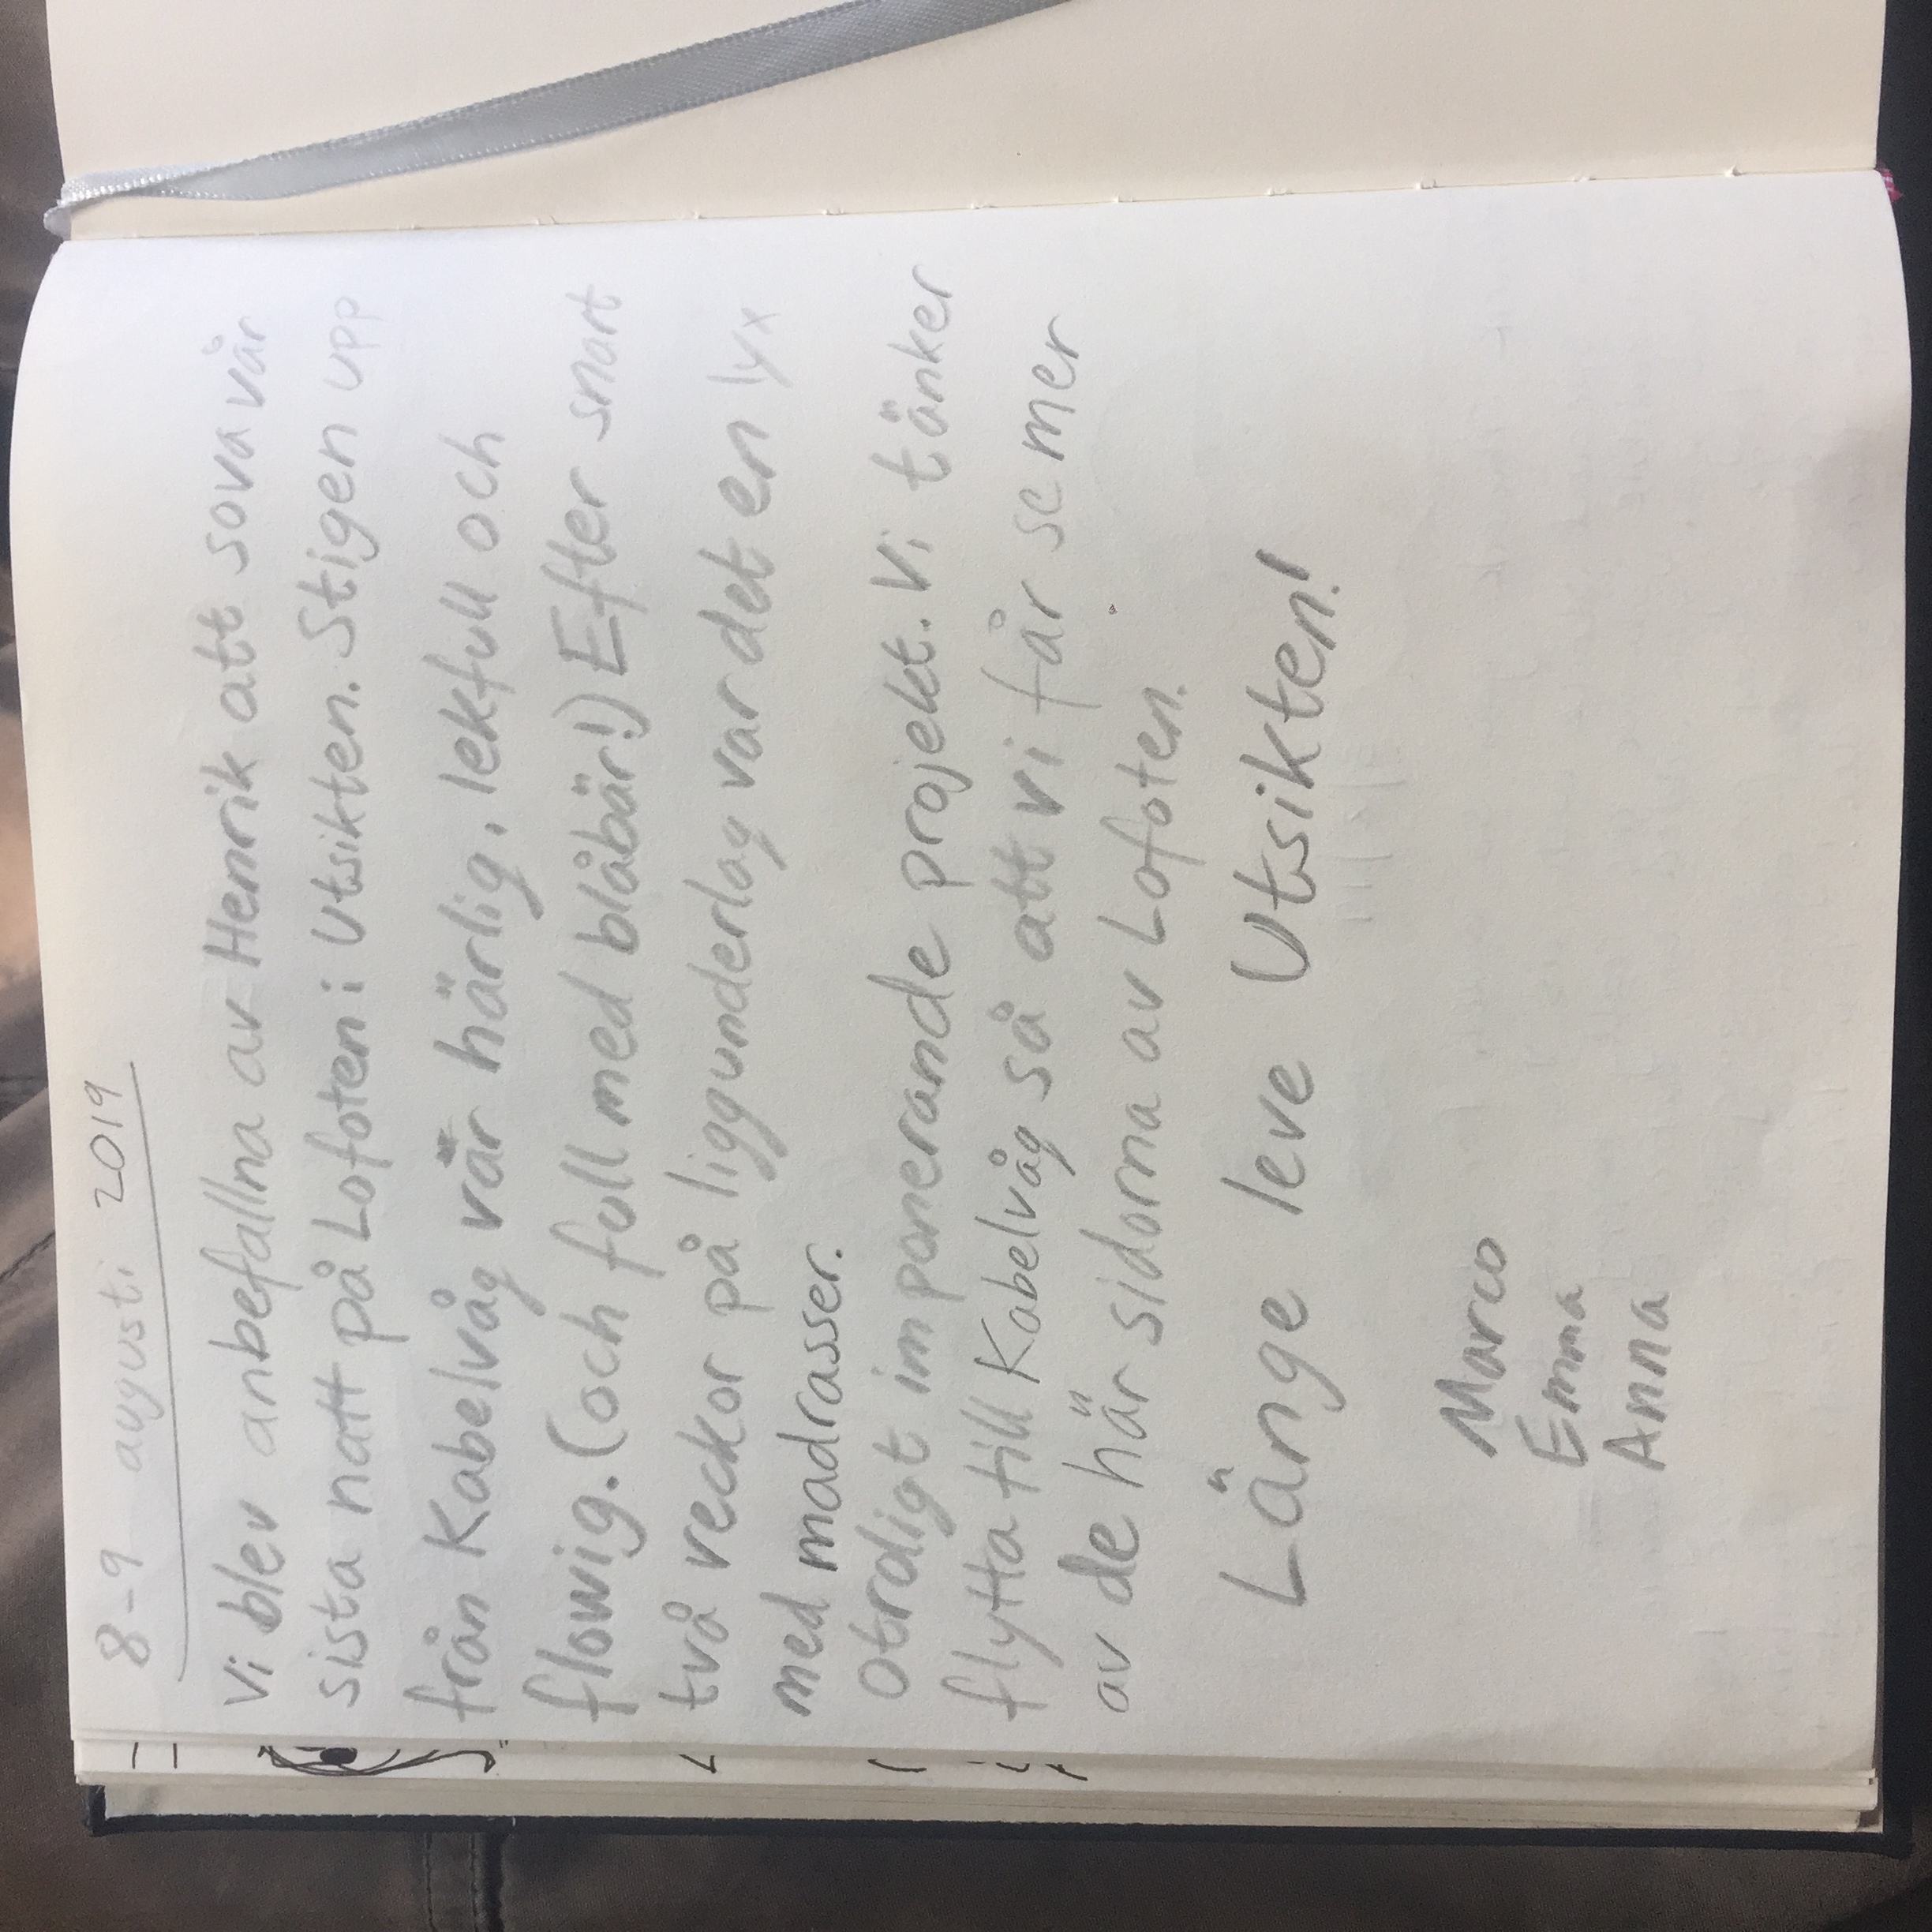 8-9 augusti 2019
Vi blev anbefallna av Henrik att sova vår
sista natt på Lofoten i Utsikten. Stigen upp
från Kabelvåg vär härlig, lekfull och
flowig. (och full med blåbär!) Efter snart
två veckor på liggunderlag var det en lyx
med madrasser.
Otrolig imponerande projekt. Vi tänker
flytta till Kabelvåg så att vi får se mer
av de här sidorna av Lofoten.
Länge leve Utsikten!
Marco
Emma
Anna